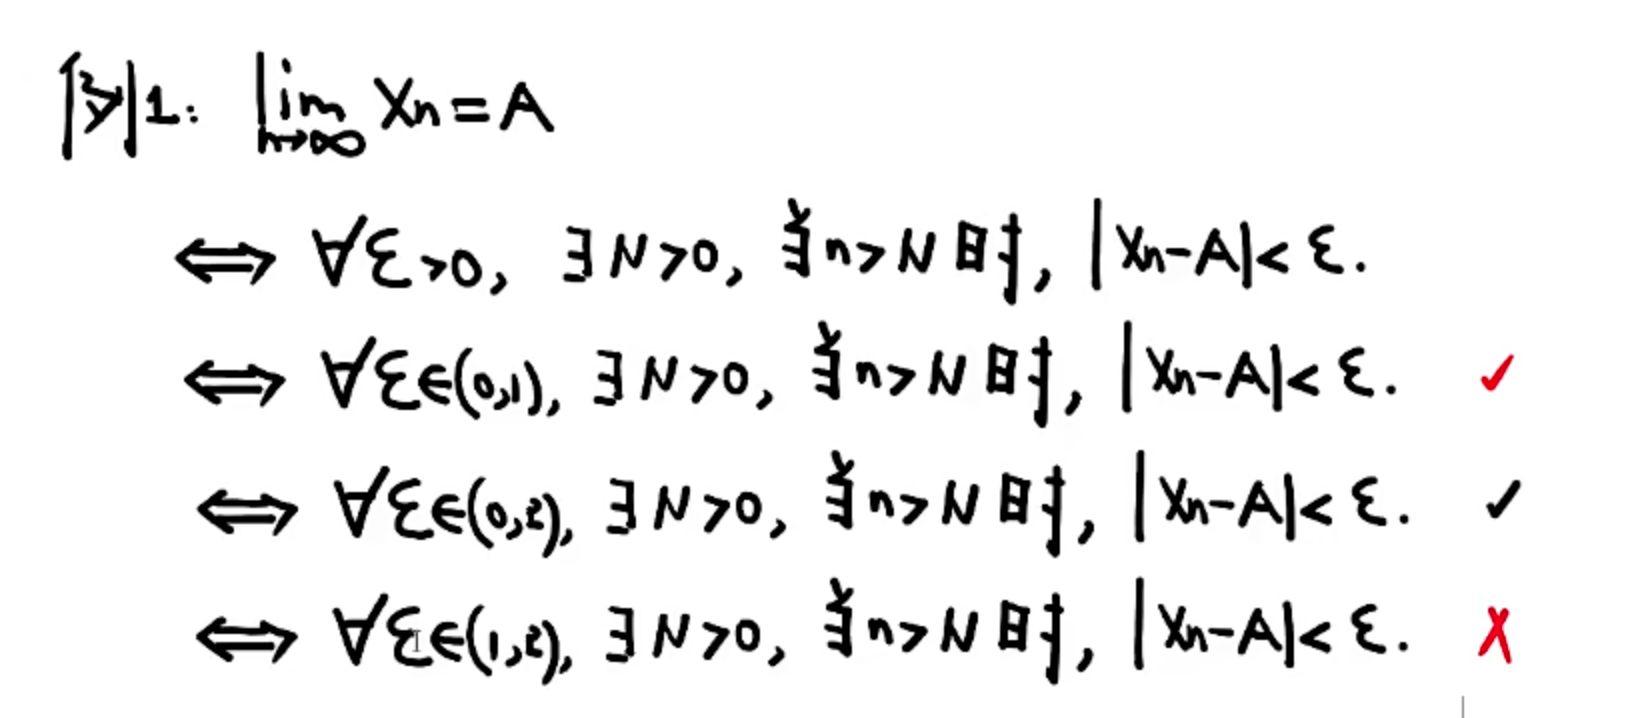 例1: lim n→∞ Xn=A
⟺ ∀ε>0, ∃N>0, 当n>N时, |Xn-A|<ε.
⟺ ∀ε∈(0,1), ∃N>0, 当n>N时, |Xn-A|<ε. ✓
⟺ ∀ε∈(0,2), ∃N>0, 当n>N时, |Xn-A|<ε. ✓
⟺ ∀ε∈(1,2), ∃N>0, 当n>N时, |Xn-A|<ε. ✗